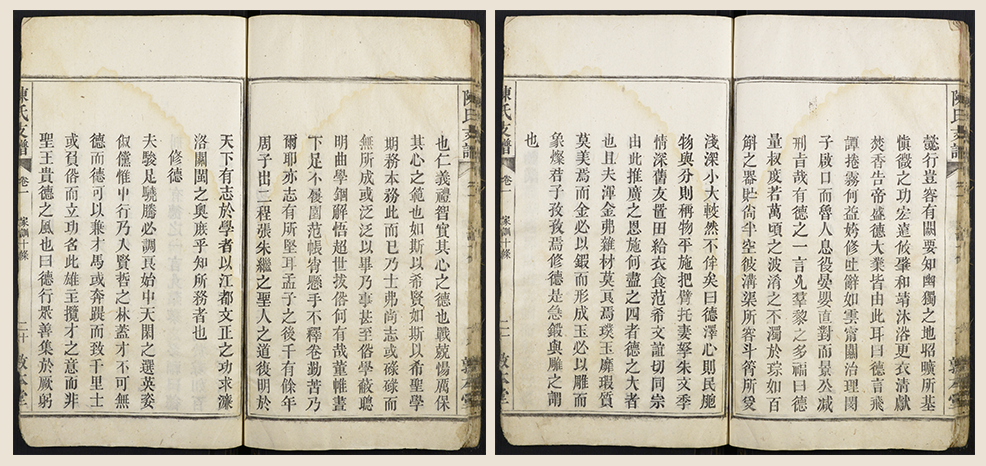 陳氏支譜
也仁義禮智實其心之德也戰兢惕厲保
其心之範也如斯以希賢如斯以希聖學
期務本務此而已乃士弗尚志或碌碌而
無所成或泛泛以畢乃事甚至俗學蔽聰
明曲學錮解悟超世拔俗何有哉董帷晝
下足不履園范帳宵懸手不釋卷勤苦乃
爾耶亦志有所堅耳孟子之後千有餘年
周子出二程張朱繼之聖人之道復明於
天下有志於學者以江都文正之功求濂
洛關閩之奧庶乎知所務者也
修德
夫駿足驍騰必調良始中天閑之選英姿
俶儻惟中行乃入賢哲之林蓋才不可無
德而德可以兼才馬或奔踶而致千里士
或負俗而立功名此雄主攬才之意而非
聖王貴德之風也曰德行眾善集於厥躬
陳氏支譜 卷一 家訓十條 二十 敦本堂
陳氏支譜
懿行豈容有闕要知幽獨之地昭曠所基
慎微之功宏遠攸肇和靖沐浴更衣清獻
焚香告帝盛德大業皆由此耳曰德言飛
譚捲霧何益姱修吐辭如雲甯關治理閔
子啟口而魯人息役晏嬰直對而景公減
刑吉哉有德之一言凡羣黎之多福曰德
量叔度若萬頃之波淆之不濁於琮如百
斛之器貯尚半空彼溝渠所容斗筲所受
淺深小大較然不侔矣曰德澤心則民胞
物與分則稱物平施把臂托妻孥朱文季
情深舊友置田給衣食范希文誼切同宗
由此推廣之恩施何盡之四者德之大者
也且夫渾金弗雜材莫良焉璞玉靡瑕質
莫美焉而金必以鍛而形成玉必以雕而
象燦君子孜孜焉修德是急鍛與雕之謂
也
陳氏支譜 卷一 家訓十條 敦本堂